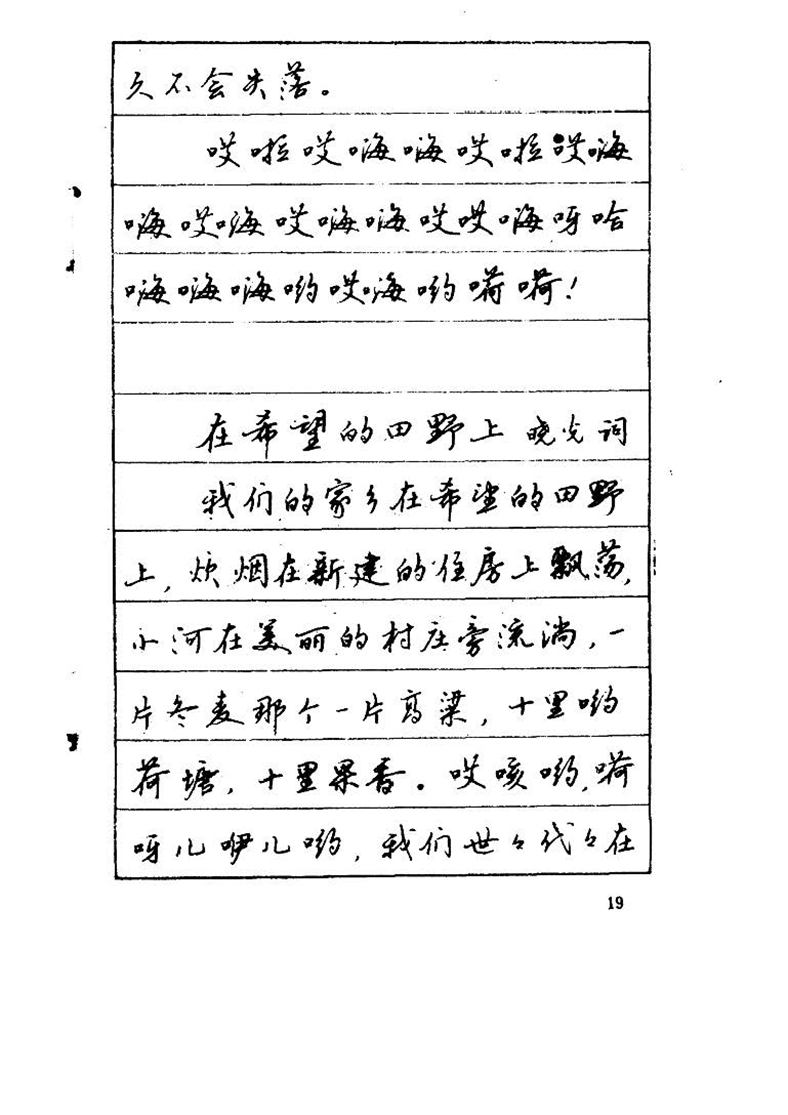 久不会失落。
哎啦哎嗨嗨哎啦哎嗨
嗨哎嗨哎嗨嗨哎哎嗨呀哈
嗨嗨嗨哟哎嗨哟嗬嗬！
在希望的田野上 晓光词
我们的家乡在希望的田野
上，炊烟在新建的住房上飘荡，
小河在美丽的村庄旁流淌，一
片冬麦那个一片高粱，十里哟
荷塘，十里果香。哎咳哟，嗬
呀儿咿儿哟，我们世々代々在
19